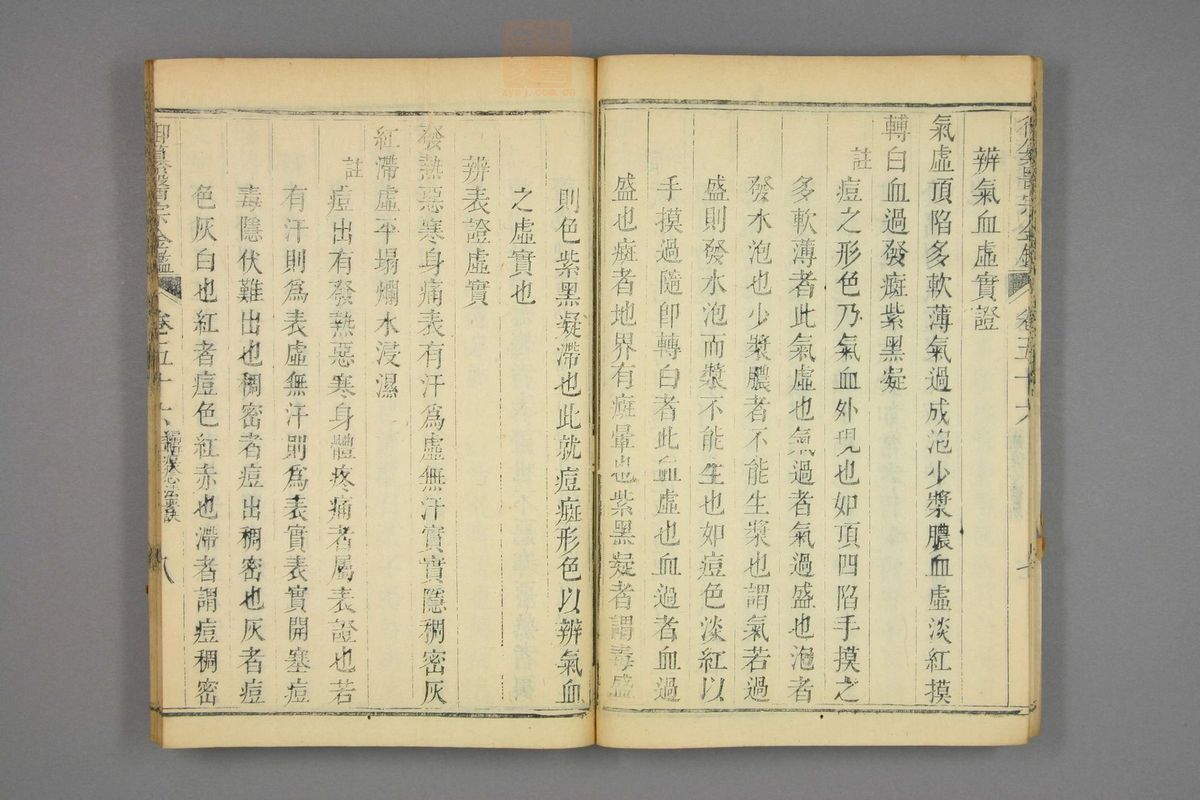 辨氣血虛實證
氣虛頂陷多軟薄氣過成泡少漿膿血虛淡紅摸
轉白血過發癍紫黑凝
註
痘之形色乃氣血外現也如頂凹陷手摸之
多軟薄者此氣虛也氣過者氣過盛也泡者
發水泡也少漿膿者不能生漿也謂氣若過
盛則發水泡而漿不能生也如痘色淡紅以
手摸過隨卽轉白者此血虛也血過者血過
盛也癍者地界有癍暈也紫黑凝者謂毒盛
則色紫黑凝滯也此就痘癍形色以辨氣血
之虛實也
辨表證虛實
發熱惡寒身痛表有汗爲虛無汗實實隱稠密灰
紅滯虛平塌爛水浸濕
註
痘出有發熱惡寒身體疼痛者屬表證也若
有汗則爲表虛無汗則爲表實表實開塞痘
毒隱伏難出也稠密者痘出稠密也灰者痘
色灰白也紅者痘色紅赤也滯者謂痘稠密
御纂醫宗金鑑
卷五十六
八